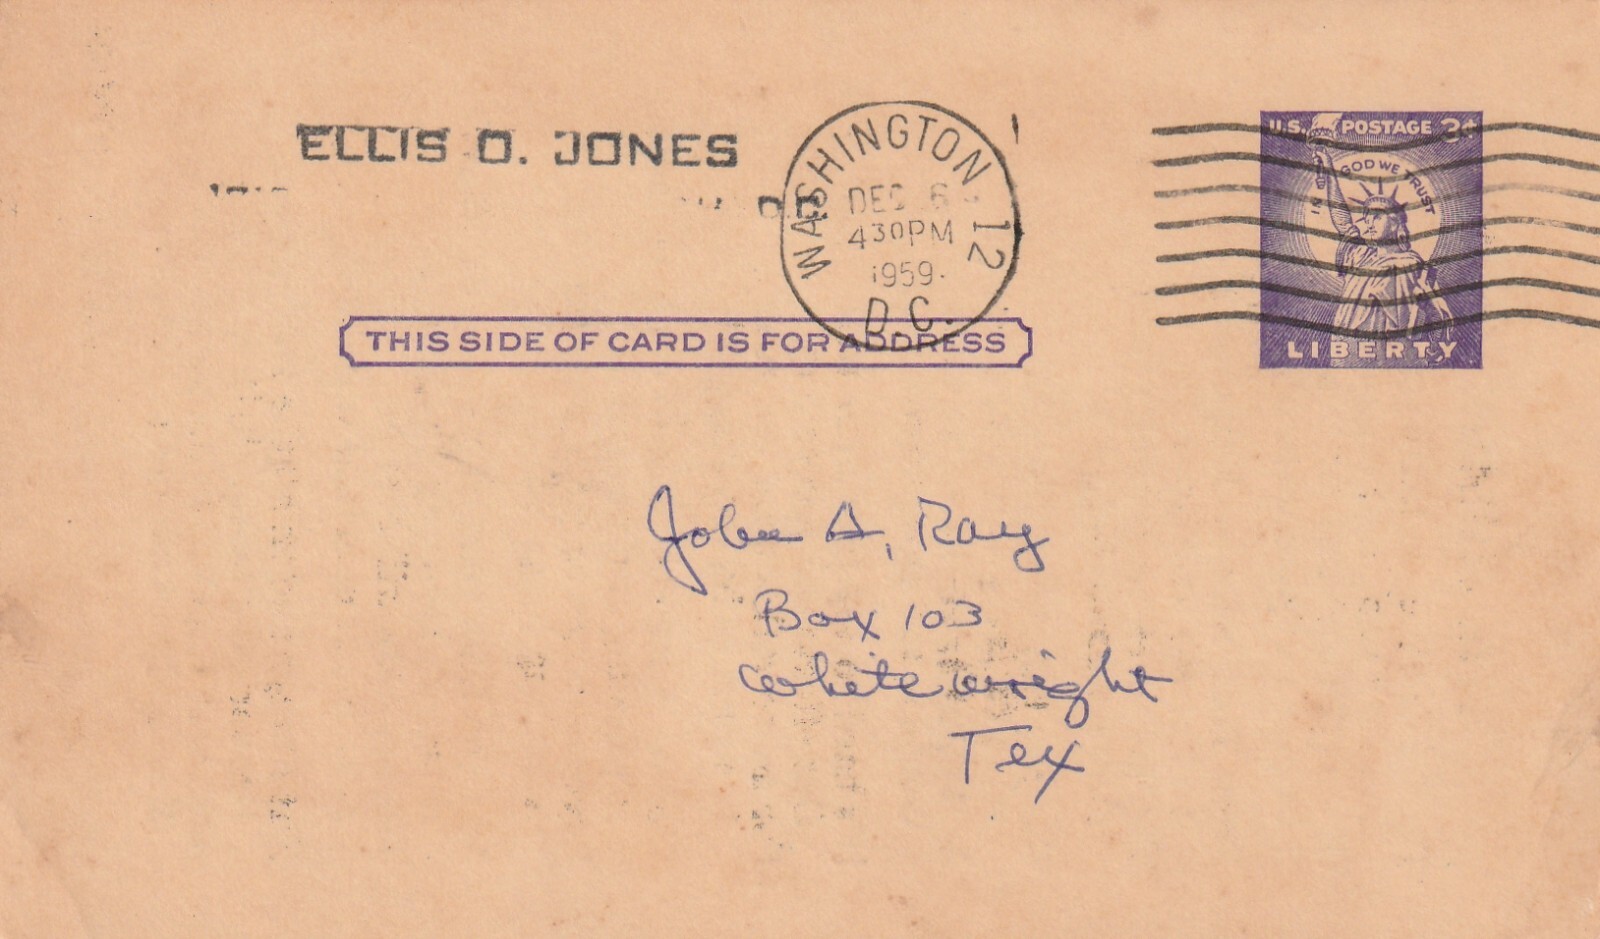 ELLIS O. JONES
WASHINGTON 12
D.C.
DEC 6
430PM
1959
U.S. POSTAGE 3¢
IN GOD WE TRUST
LIBERTY
THIS SIDE OF CARD IS FOR ADDRESS
John A. Ray
Box 103
Whitewright
Tex